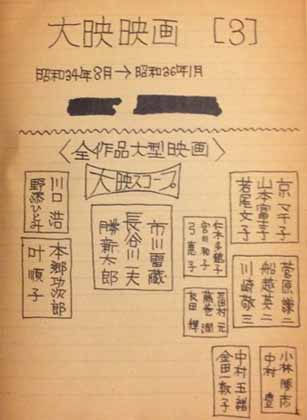 大映映画 [3]
昭和34年8月→昭和36年1月
〈全作品大型映画〉
大映スコープ
京マチ子
山本富士子
若尾文子
市川雷蔵
長谷川一夫
勝新太郎
川口浩
野添ひとみ
本郷功次郎
叶順子
仁木多鶴子
宮川和子
弓恵子
菅原謙二
船越英二
川崎敬三
品村元
藤巻潤
友田輝
小林勝彦
中村豊
中村玉緒
金田一敦子